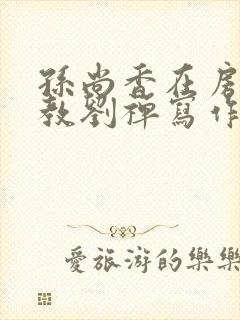 孫尚香在房
教劉禪寫作
愛旅游的樂樂